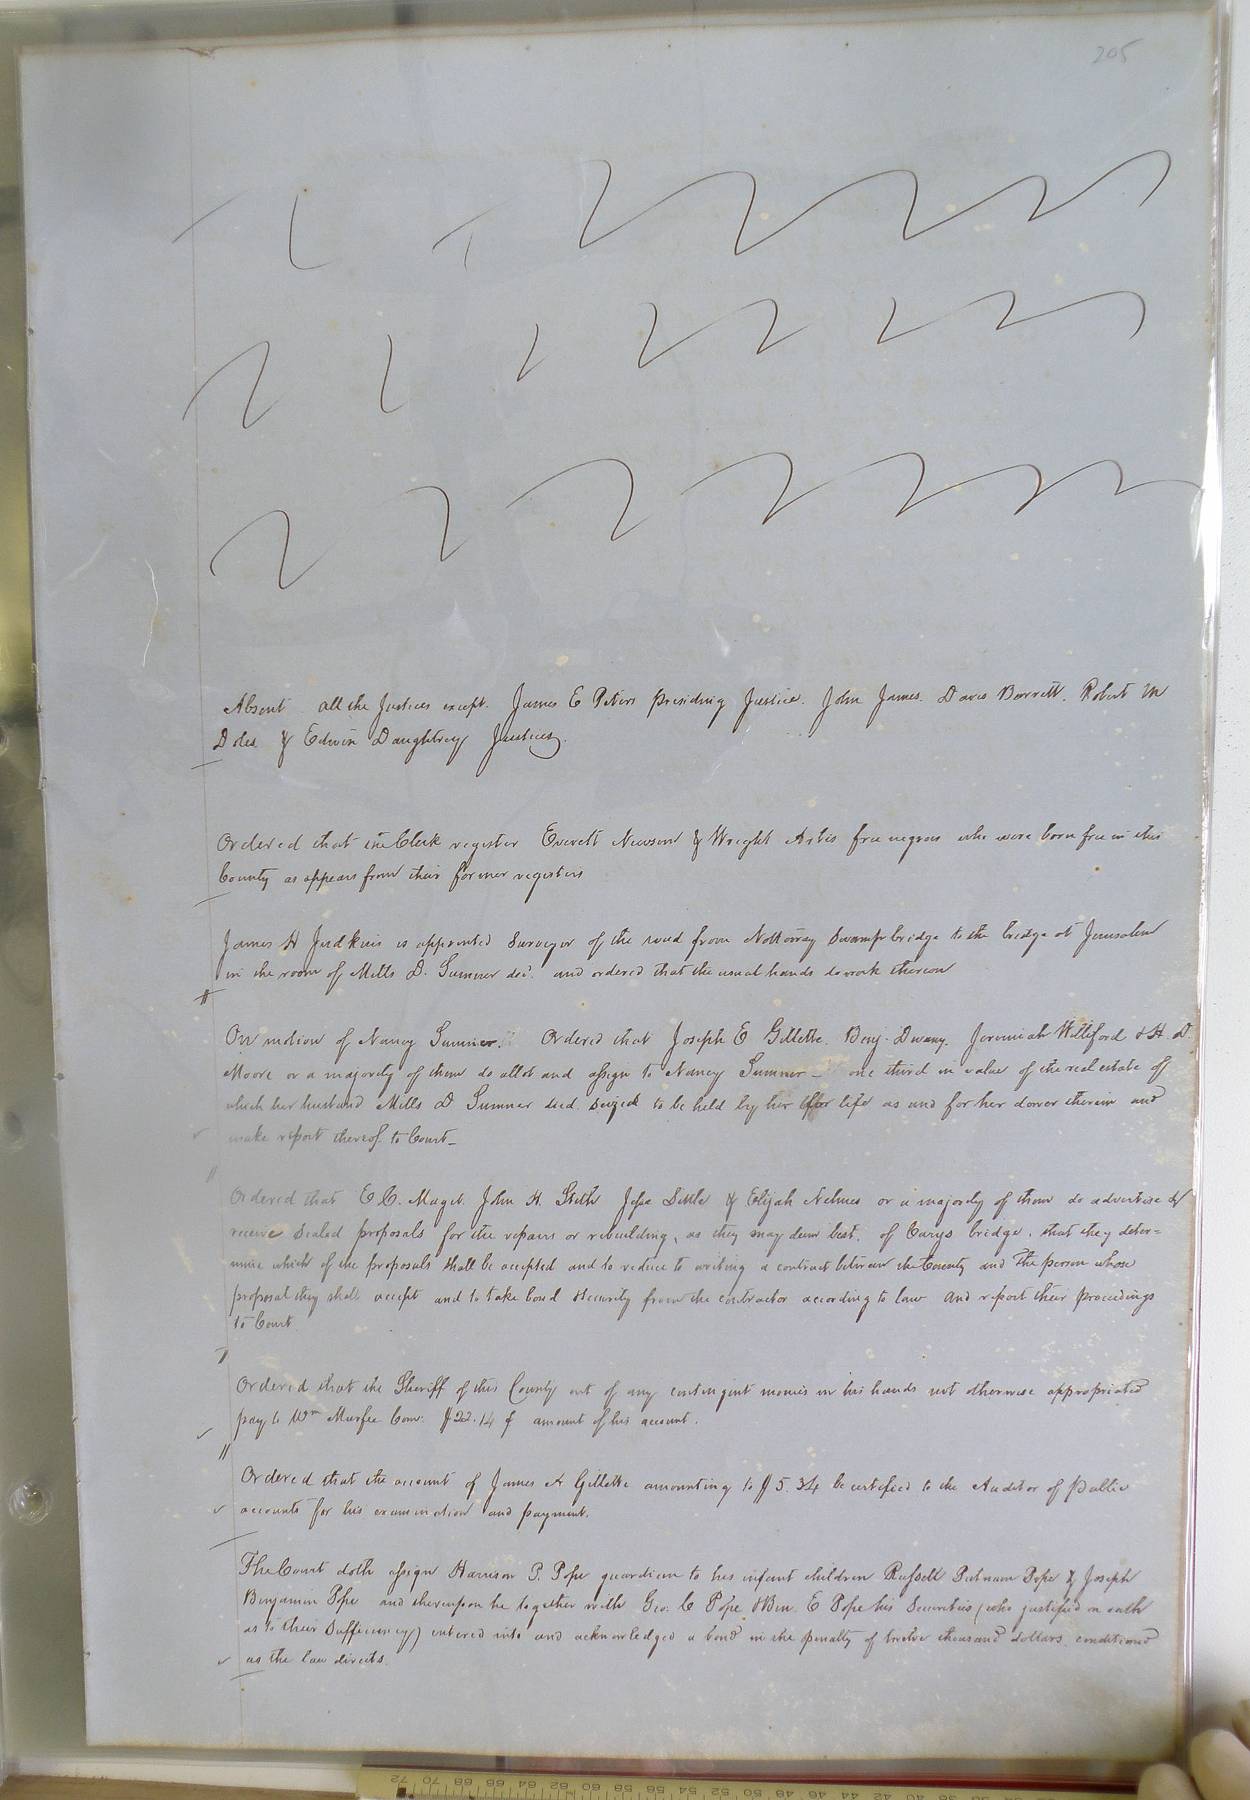 205
Absent all the Justices except James E Peters Presiding Justice. John James. Davis Barrett. Robert M
Doles & Edwin Daughtrey Justices.
Ordered that the Clerk register Everett Newsom & Wright Artis free negroes who were born free in this
County as appears from their former registers
James H Judkins is appointed Surveyor of the road from Nottoway Swamp bridge to the bridge at Jerusalem
in the room of Mills D. Sumner decd. and ordered that the usual hands do work thereon
On motion of Nancy Sumner. Ordered that Joseph E Gillette. Benj. Jeremiah Williford & H. D.
Moore or a majority of them do allot and assign to Nancy Sumner one third in value of the real estate of
which her husband Mills D Sumner died seized to be held by her for life as and for her dower therein and
make report thereof to Court
Ordered that E C. Maget. John H. Stith Jesse Little & Elijah Nelms or a majority of them do advertise &
receive sealed proposals for the repairs or rebuilding, as they may deem best, of Carys bridge, that they deter=
mine which of the proposals shall be accepted and to reduce to writing a contract between the County and the person whose
proposal they shall accept and to take bond & security from the contractor according to law and report their proceedings
to Court
Ordered that the Sheriff of this County out of any contingent monies in his hands not otherwise appropriated
pay to Wm Murfee Comr. $22.14 amount of his account.
Ordered that the account of James A Gillette amounting to $5.34 be certified to the Auditor of Public
accounts for his examination and payment.
The Court doth assign Harrison P. Pope guardian to his infant children Russell Putnam Pope & Joseph
Benjamin Pope and thereupon he together with Geo. C Pope & Ben. E Pope his Securities (who justified on oath
as to their sufficiency) entered into and acknowledged a bond in the penalty of twelve thousand dollars conditioned
as the law directs.
72 70 68 66 64 62 60 58 56 54 52 50 48 46 44 42 40 38 36